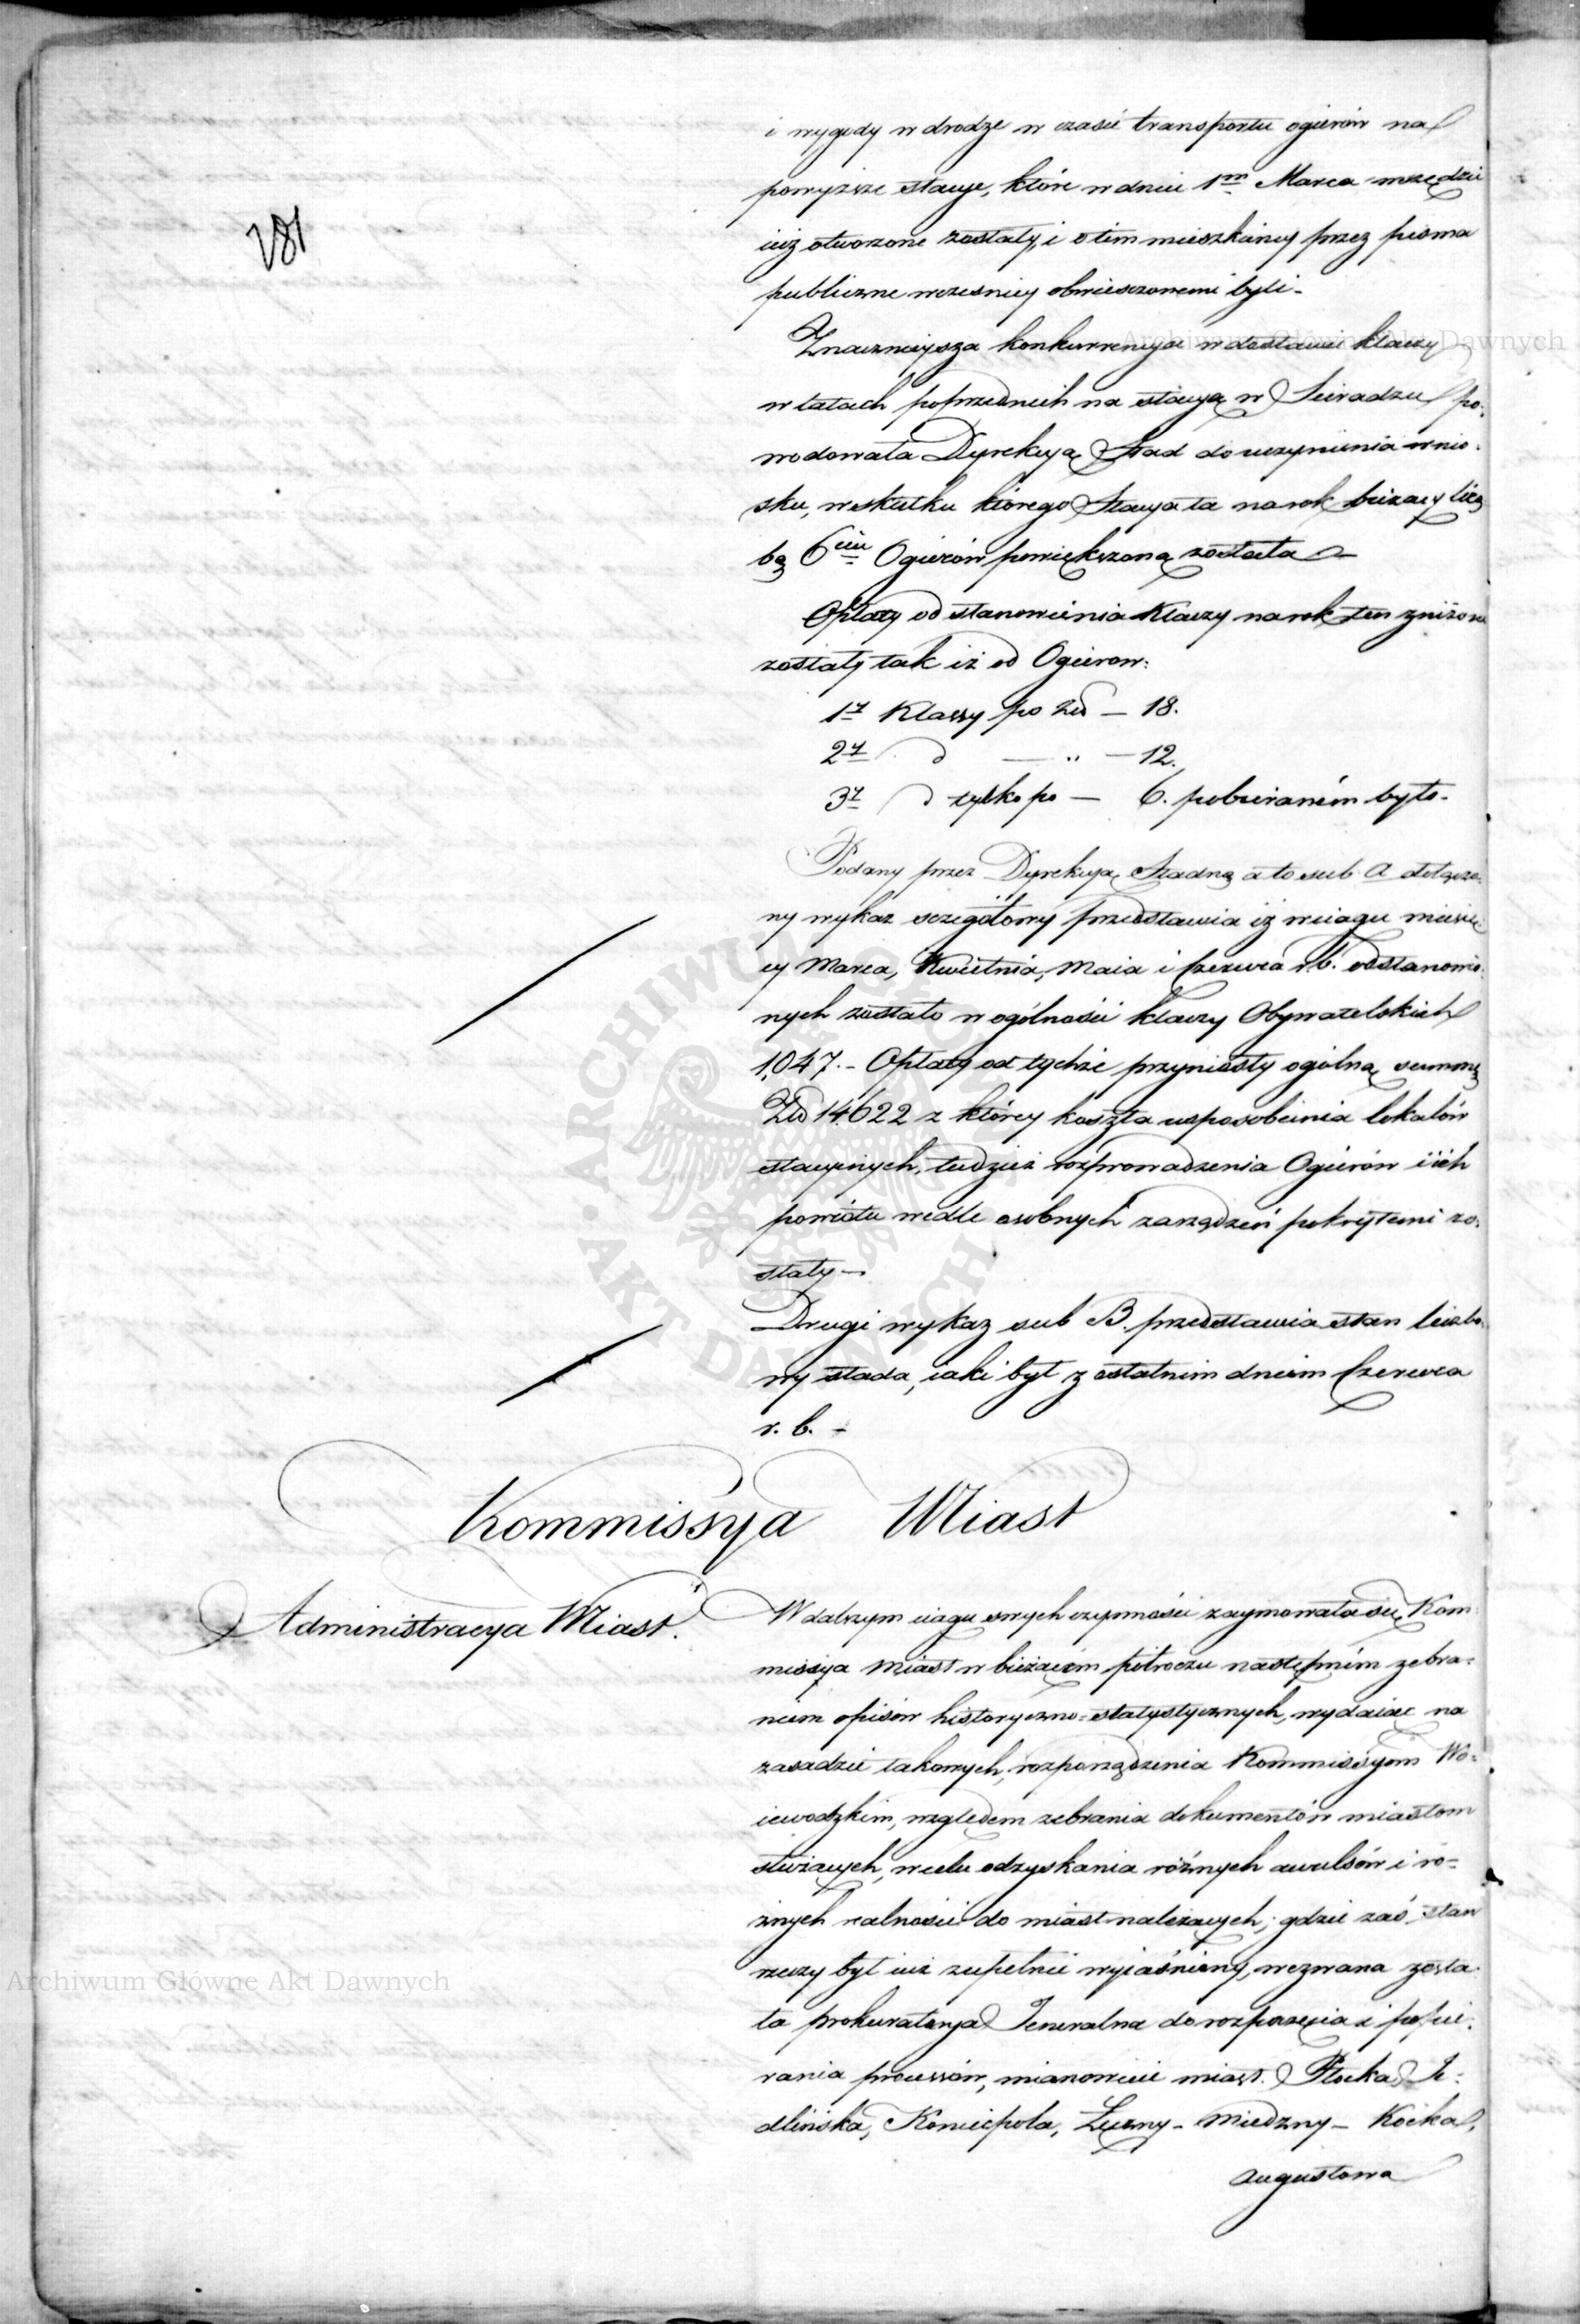 781
i wygody w drodze w czasie transportu ogierów na
powyższe stacye, które w dniu 1m Marca wszędzie
iuż otworzone zostały, i o tem mieszkańcy przez pisma
publiczne wcześniey obwieszczonemi byli -
Znacznieysza konkurrencya w dostawie klaczy
w latach poprzednich na stacyą w Sieradzu po-
wodowała Dyrekcyą Stad do uczynienia wnio-
sku, w skutku którego Stacya ta na rok bieżący licz
bą 6ciu Ogierów powiększoną została -
Opłaty od stanowienia Klaczy na rok ten zniżone
zostały tak iż od Ogierow:
1y Klassy po Złp — 18.
2y d — „ — 12.
3y d tylko po — 6. pobieraném było -
Podany przez Dyrekcyą Stadną a tu sub A dołączo-
ny wykaz szczegółowy przedstawia iż w ciągu miesię-
cy Marca, Kwietnia, Maia i Czerwca r. b. odstanowio-
nych zostało w ogólności klaczy Obywatelskich
1,047. - Opłaty od tychże przyniosły ogólną summę
Złp 14,622 z którey koszta usposobienia lokalów
stacyinych, tudzież rozprowadzenia Ogierów i ich
powrotu wedle osobnych zarządzeń pokrytemi zo-
stały -
Drugi wykaz sub B. przedstawia stan liczbo-
wy stada, iaki był z ostatnim dniem Czerwca
r. b. -
Kommissya Miast
Administracya Miast.
W dalszym ciągu swych czynności zaymowała się Kom
missya Miast w bieżącém półroczu następném zebra-
niem opisów historyczno-statystycznych, wydaiąc na
zasadzie takowych, rozporządzenia Kommissyom Wo-
iewodzkim, względem zebrania dokumentów miastom
służących, w celu odzyskania różnych awulsów i ró-
żnych realności do miast należących; gdzie zaś stan
rzeczy był iuż zupełnie wyiaśniony, wezwana zosta-
ła prokuratorya Jeneralna do rozpoczęcia i popie-
rania processów, mianowicie miast. Płocka, Je-
dlińska, Koniecpola, Łęczny - Miedzny - Kocka,
Augustowa